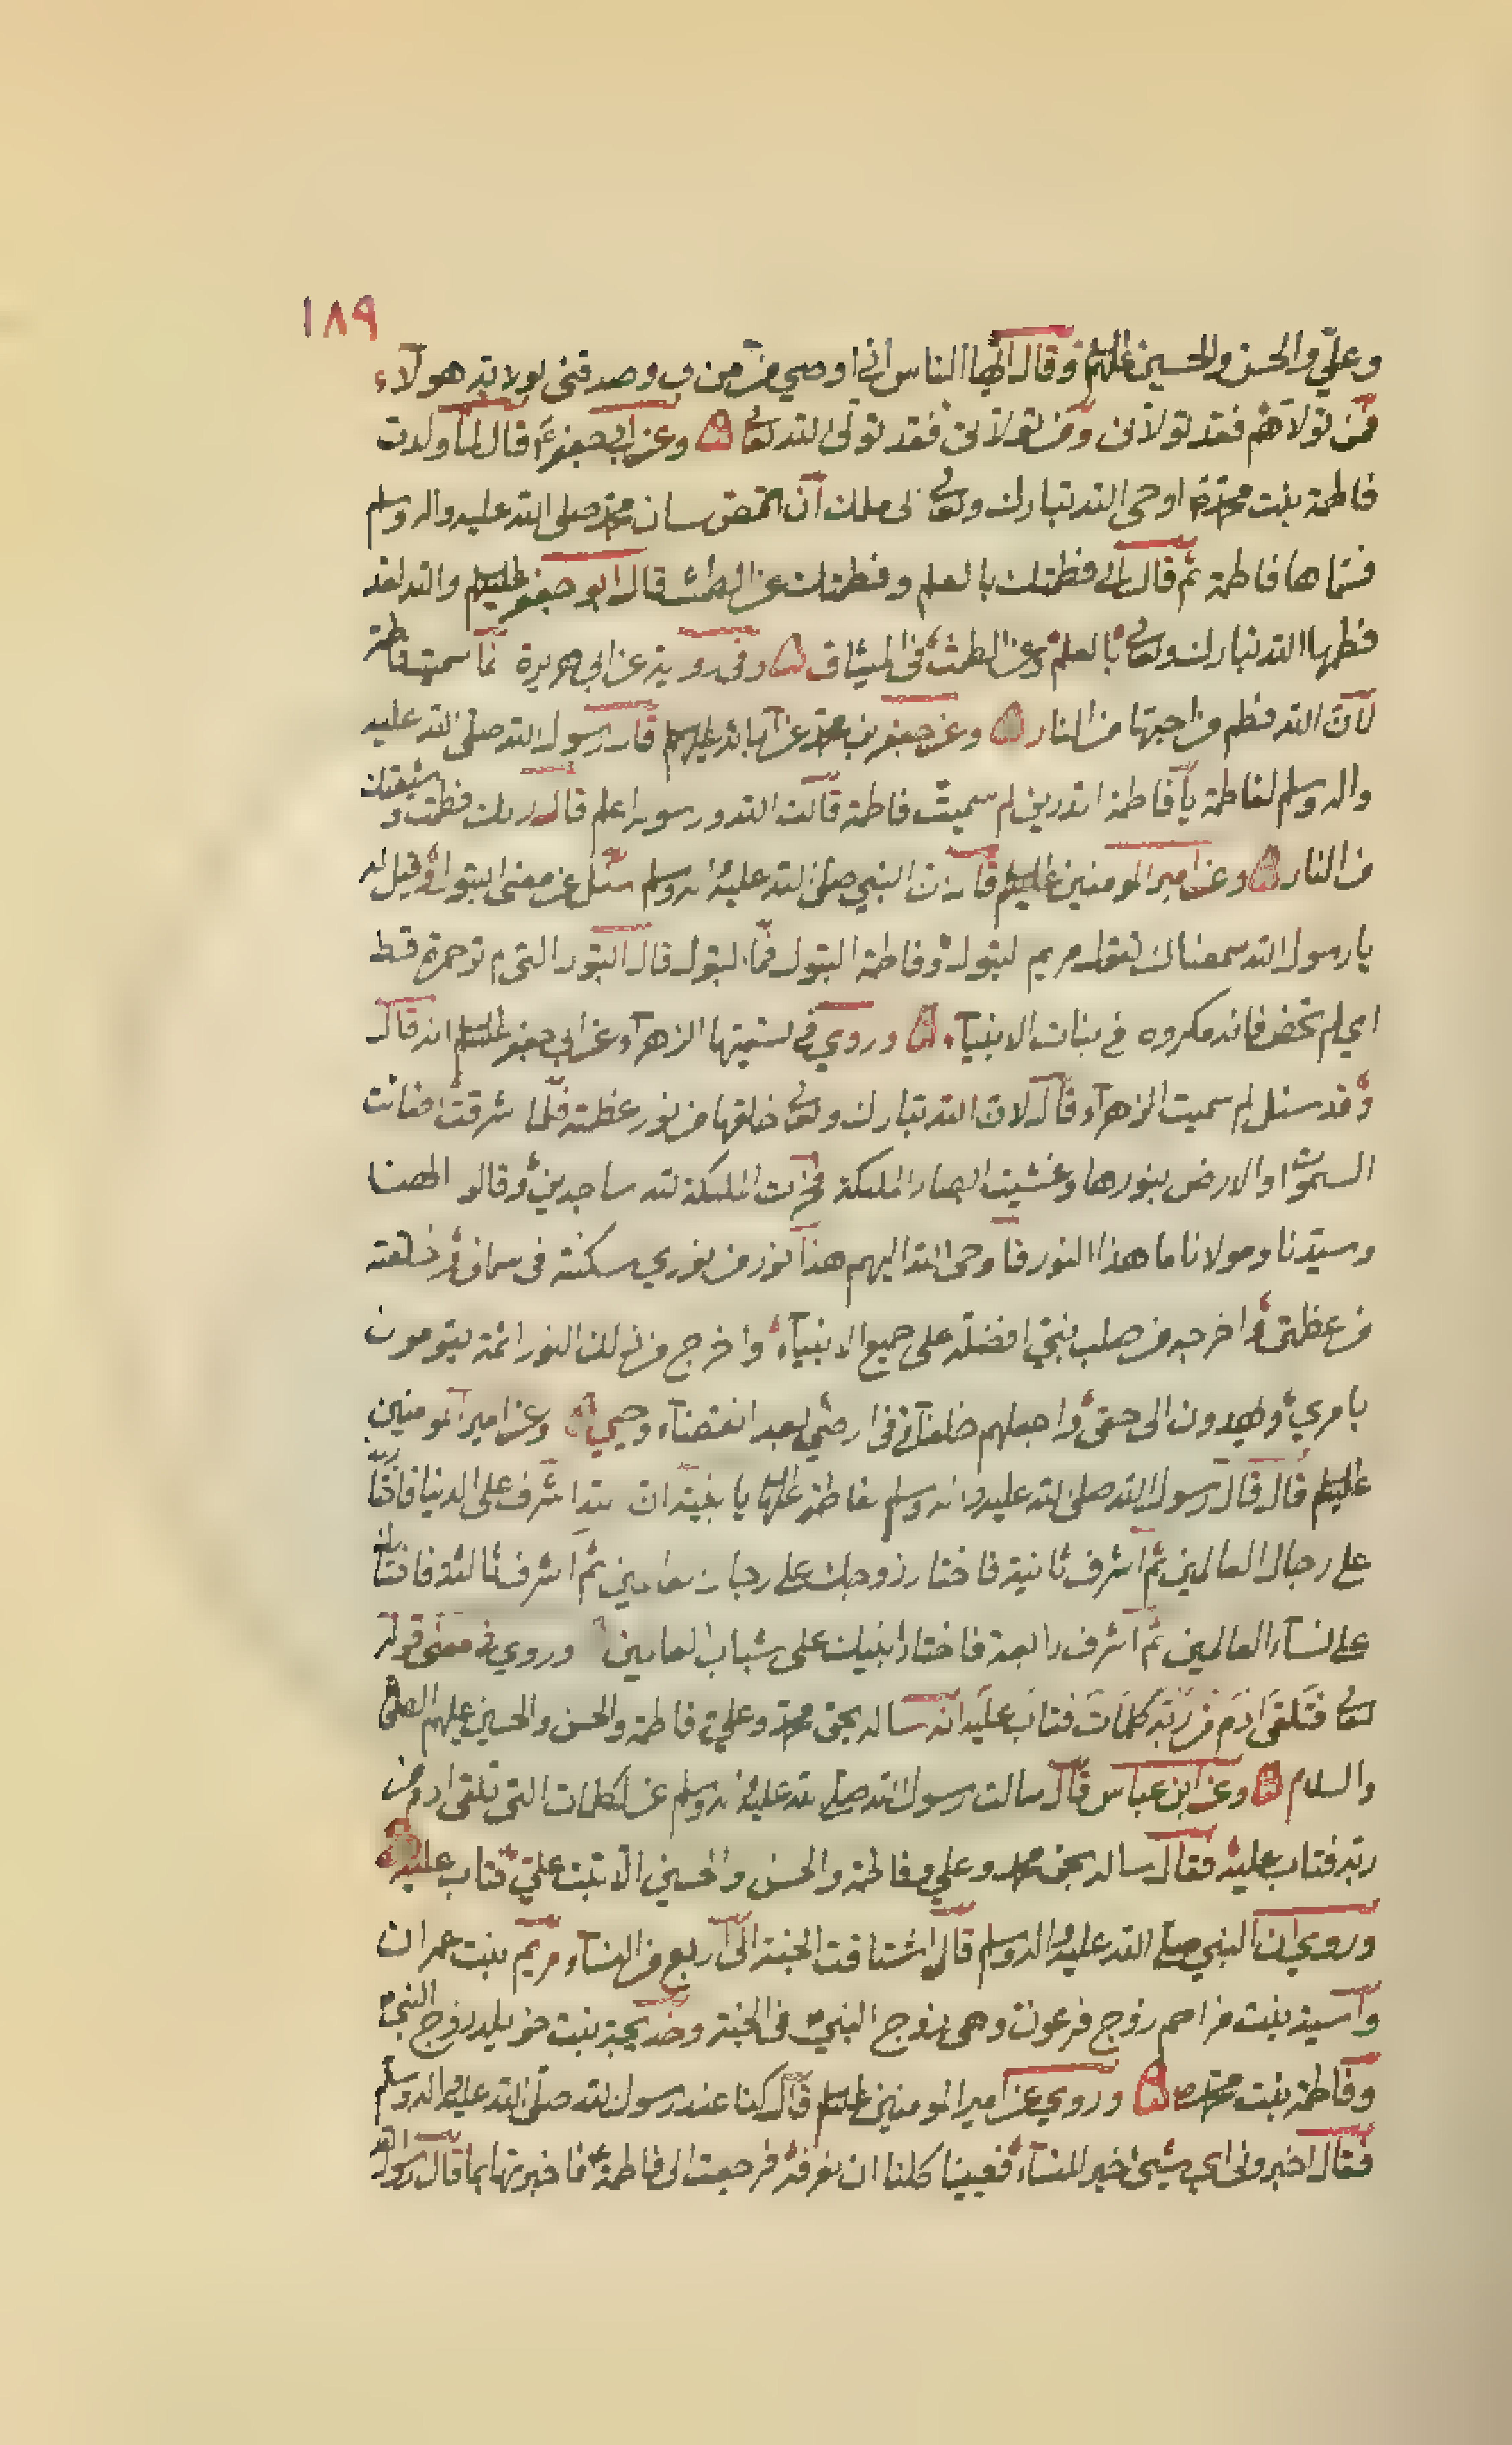 ١٨٩
وعليّ والحسن والحسين عليهم وقال ايّها الناس اني اوصي من آمن بي وصدقني بولاية هولآء
فمن تولاهم فقد تولاني ومن تولاني فقد تولى الله تعالى وعن ابي جعفر ع قال لما ولدت
فاطمة بنت محمد اوحى الله تبارك وتعالى الى ملك ان لسان محمد صلى الله عليه واله وسلم
فسماها فاطمة ثم قال اني فطمتك بالعلم وفطمتك عن الطمث قال ابو جعفر عليه السلم والله لقد
فطمها الله تبارك وتعالى بالعلم وعن الطمث في الميثاق وفي رواية عن ابي هريرة انما سميت فاطمة
لان الله فطم من احبها من النار وعن جعفر بن محمد عن ابائه عليهم السلم قال رسول الله صلى الله عليه
واله وسلم لفاطمة يا فاطمة اتدرين لم سميت فاطمة قالت الله ورسوله اعلم قال ربك فطمك و شيعتك
من النار وعن امير المومنين عليه السلم قال ان النبي صلى الله عليه واله وسلم سئل عن معنى البتول وقيل له
يا رسول الله سمعناك تقول مريم البتول وفاطمة البتول فما البتول قال البتول التي لم تر حمرة قط
اي لم تحض فانه مكروه في بنات الانبيآء وروي في تسميتها الزهرآء وعن ابي جعفر عليه السلم انه قال
وقد سئل لم سميت الزهرآء قال لان الله تبارك وتعالى خلقها من نور عظمته فلما اشرقت اضائت
السموات والارض بنورها وغشيت ابصار الملئكة فخرت الملئكة لله ساجدين وقالو الهنا
وسيدنا ومولانا ما هذا النور فاوحى الله اليهم هذا نور من نوري سكنته في سمائي وخلقته
من عظمتي واخرجه من صلب نبي افضله على جميع الانبيآء واخرج من ذلك النور ائمة يقومون
بامري ويهدون الى حقي واجعلهم خلفائي في ارضي بعد انقضآء وحيي وعن امير المومنين
عليه السلم قال قال رسول الله صلى الله عليه واله وسلم لفاطمة عليها يا بنية ان الله اشرف على الدنيا فاختارني
على رجال العالمين ثم اشرف ثانية فاختار زوجك على رجال العالمين ثم اشرف ثالثة فاختارك
على نسآء العالمين ثم اشرف رابعة فاختار ابنيك على شباب العالمين وروي في معنى قوله
تعالى فتلقى ادم من ربه كلمات فتاب عليه انه ساله بحق محمد وعلي وفاطمة والحسن والحسين عليهم الصلوة
والسلام وعن ابن عباس قال سالت رسول الله صلى الله عليه واله وسلم عن الكلمات التي تلقى ادم من
ربه فتاب عليه فقال ساله بحق محمد وعلي وفاطمة والحسن والحسين الا تبت علي فتاب عليه
وروي ان النبي صلى الله عليه واله وسلم قال اشتاقت الجنة الى اربع من النسآء مريم بنت عمران
واسية بنت مزاحم زوج فرعون وهي زوج النبي في الجنة وخديجة بنت خويلد زوج النبي
وفاطمة بنت محمد ص وروي عن امير المومنين عليه السلم قال كنا عند رسول الله صلى الله عليه واله وسلم
فقال اخبروني اي شيئ خير للنسآء فعيينا كلنا ان نعرفه فرجعت الى فاطمة فاخبرتها بما قال رسول الله